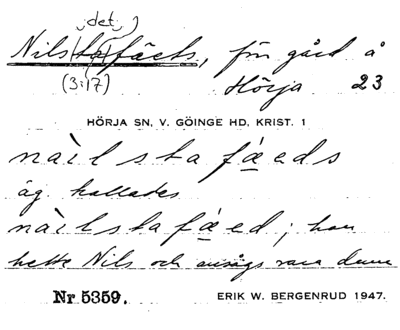 (det)
Nils(ta)fäets, fön gård å
(3:17) Hörja 23
HÖRJA SN, V. GÖINGE HD, KRIST. 1
nàil sta fǽeds
äg. kallades
nàilstafǽed; han
hette Nils och ansågs vara dum
Nr 5359. ERIK W. BERGENRUD 1947.